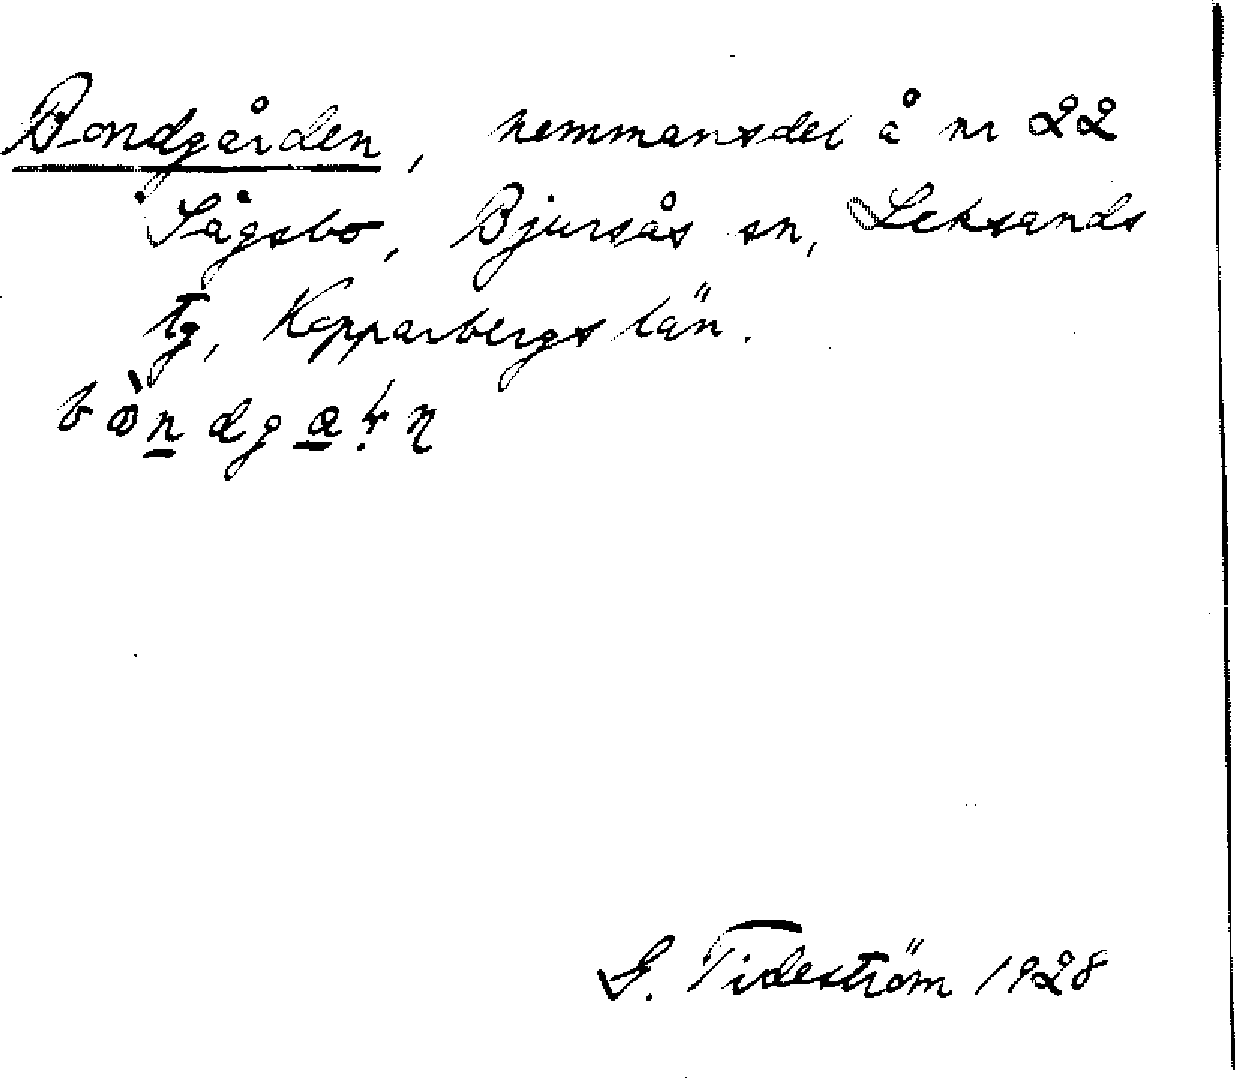 Bondgården, hemmansdel å nr 22
Sågsbo, Bjursås sn, Leksands
tg, Kopparbergs län.
G. Tideström 1928